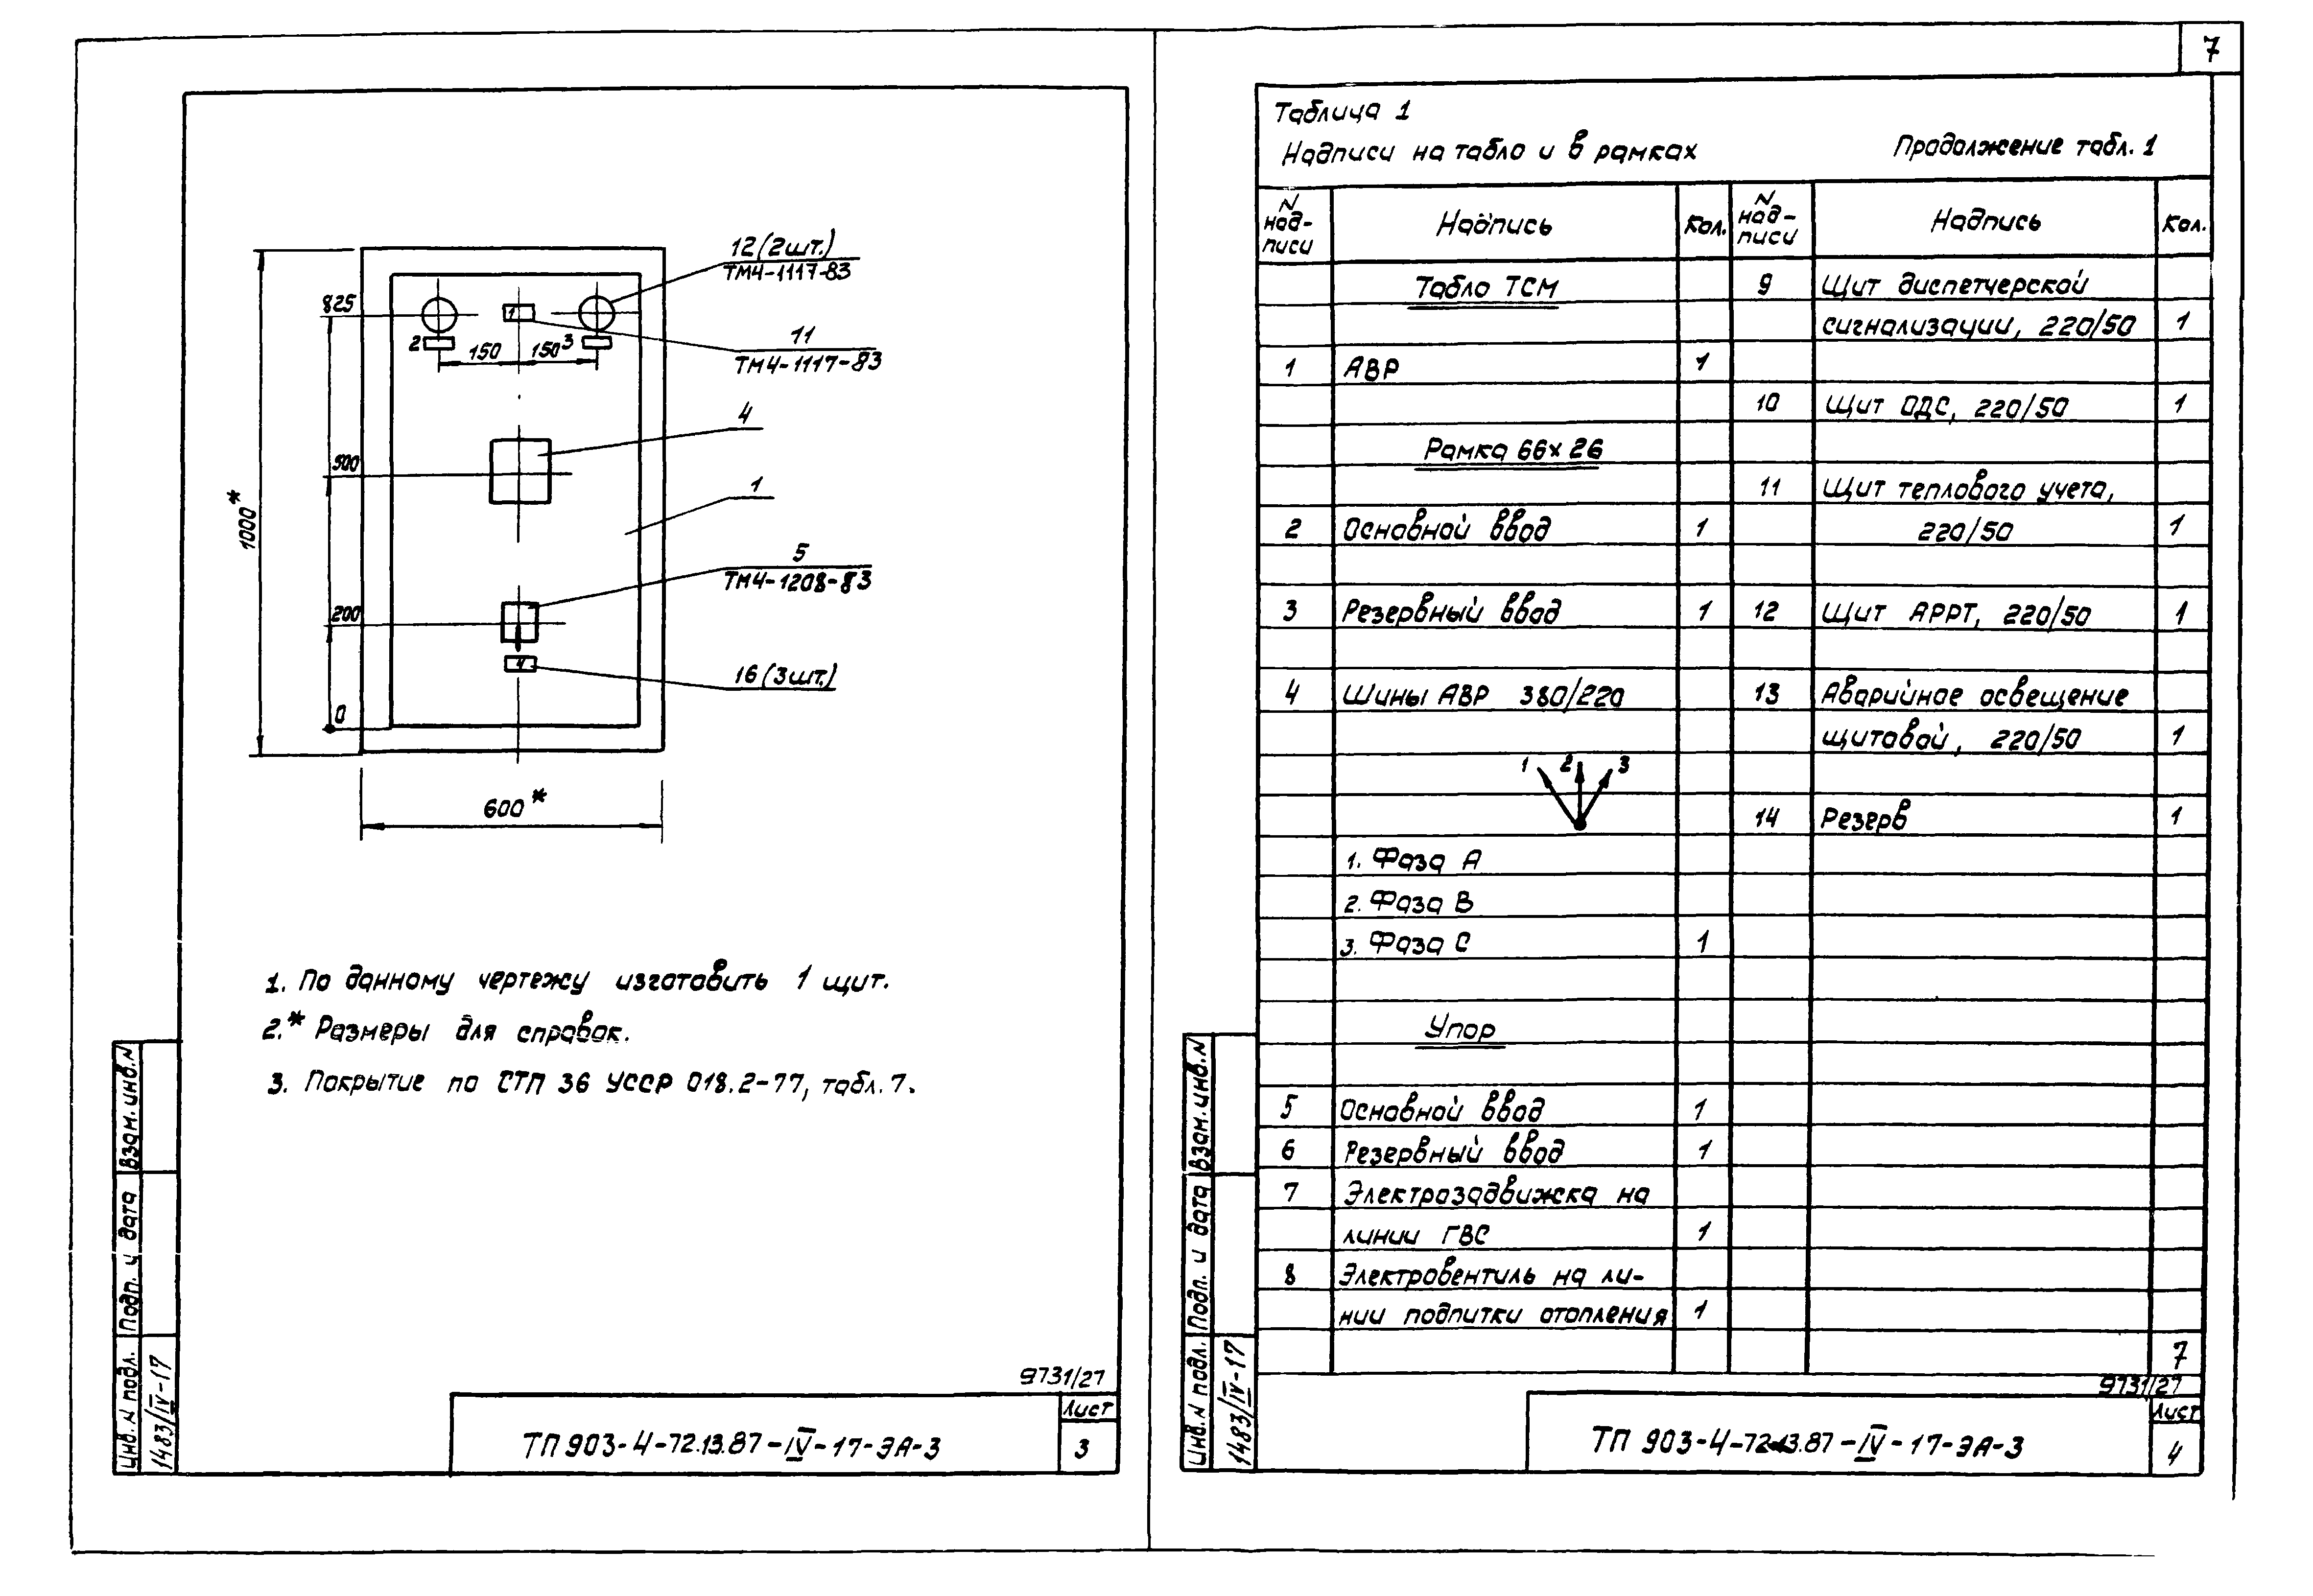 7
12 (2шт.)
ТМ4-1117-83
11
ТМ4-1117-83
4
1
5
ТМ4-1208-83
16 (3шт.)
825
500
200
0
1000*
600*
1
2
150
150
3
4
1. По данному чертежу изготовить 1 щит.
2.* Размеры для справок.
3. Покрытие по СТП 36 УССР 018.2-77, табл. 7.
Взам. инв. N
Подп. и дата
Инв. N подл.
1483/IV-17
9731/27
ТП 903-4-72.13.87-IV-17-ЭА-3
Лист
3
Таблица 1
Надписи на табло и в рамках
Продолжение табл. 1
N надписи Надпись Кол. N надписи Надпись Кол.
Табло ТСМ 9 Щит диспетчерской
сигнализации, 220/50 1
1 АВР 1
10 Щит ОДС, 220/50 1
Рамка 66х26
11 Щит теплового учета,
2 Основной ввод 1 220/50 1
3 Резервный ввод 1 12 Щит АРРТ, 220/50 1
4 Шины АВР 380/220 13 Аварийное освещение
щитовой, 220/50 1
1 2 3
14 Резерв 1
1. Фаза А
2. Фаза В
3. Фаза С 1
Упор
5 Основной ввод 1
6 Резервный ввод 1
7 Электрозадвижка на
линии ГВС 1
8 Электровентиль на ли-
нии подпитки отопления 1
7
9731/27
Взам. инв. N
Подп. и дата
Инв. N подл.
1483/IV-17
ТП 903-4-72.13.87-IV-17-ЭА-3
Лист
4